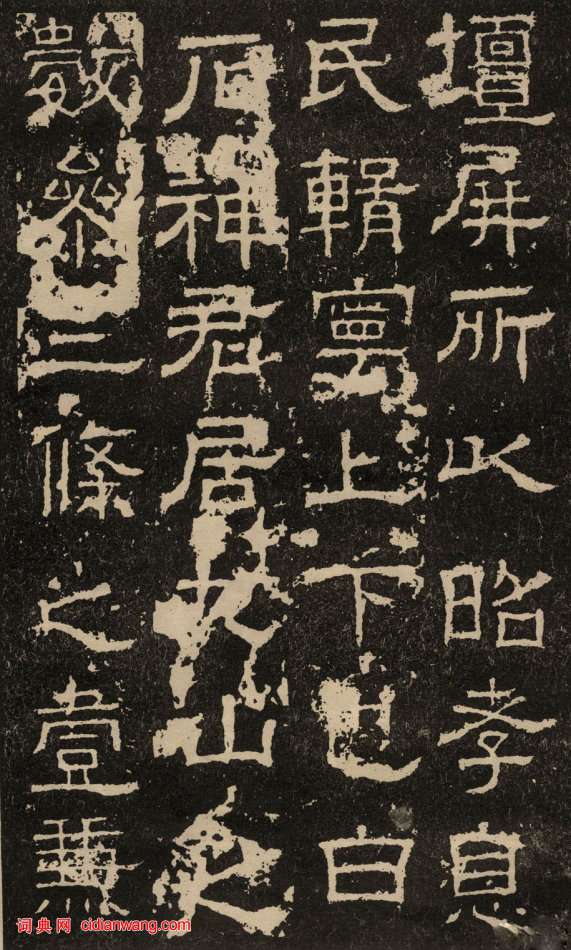 壇屏所以昭孝息
民輯寧上下也白
石神君居九山之
數參三條之壹兼
词典网 cidianwang.com